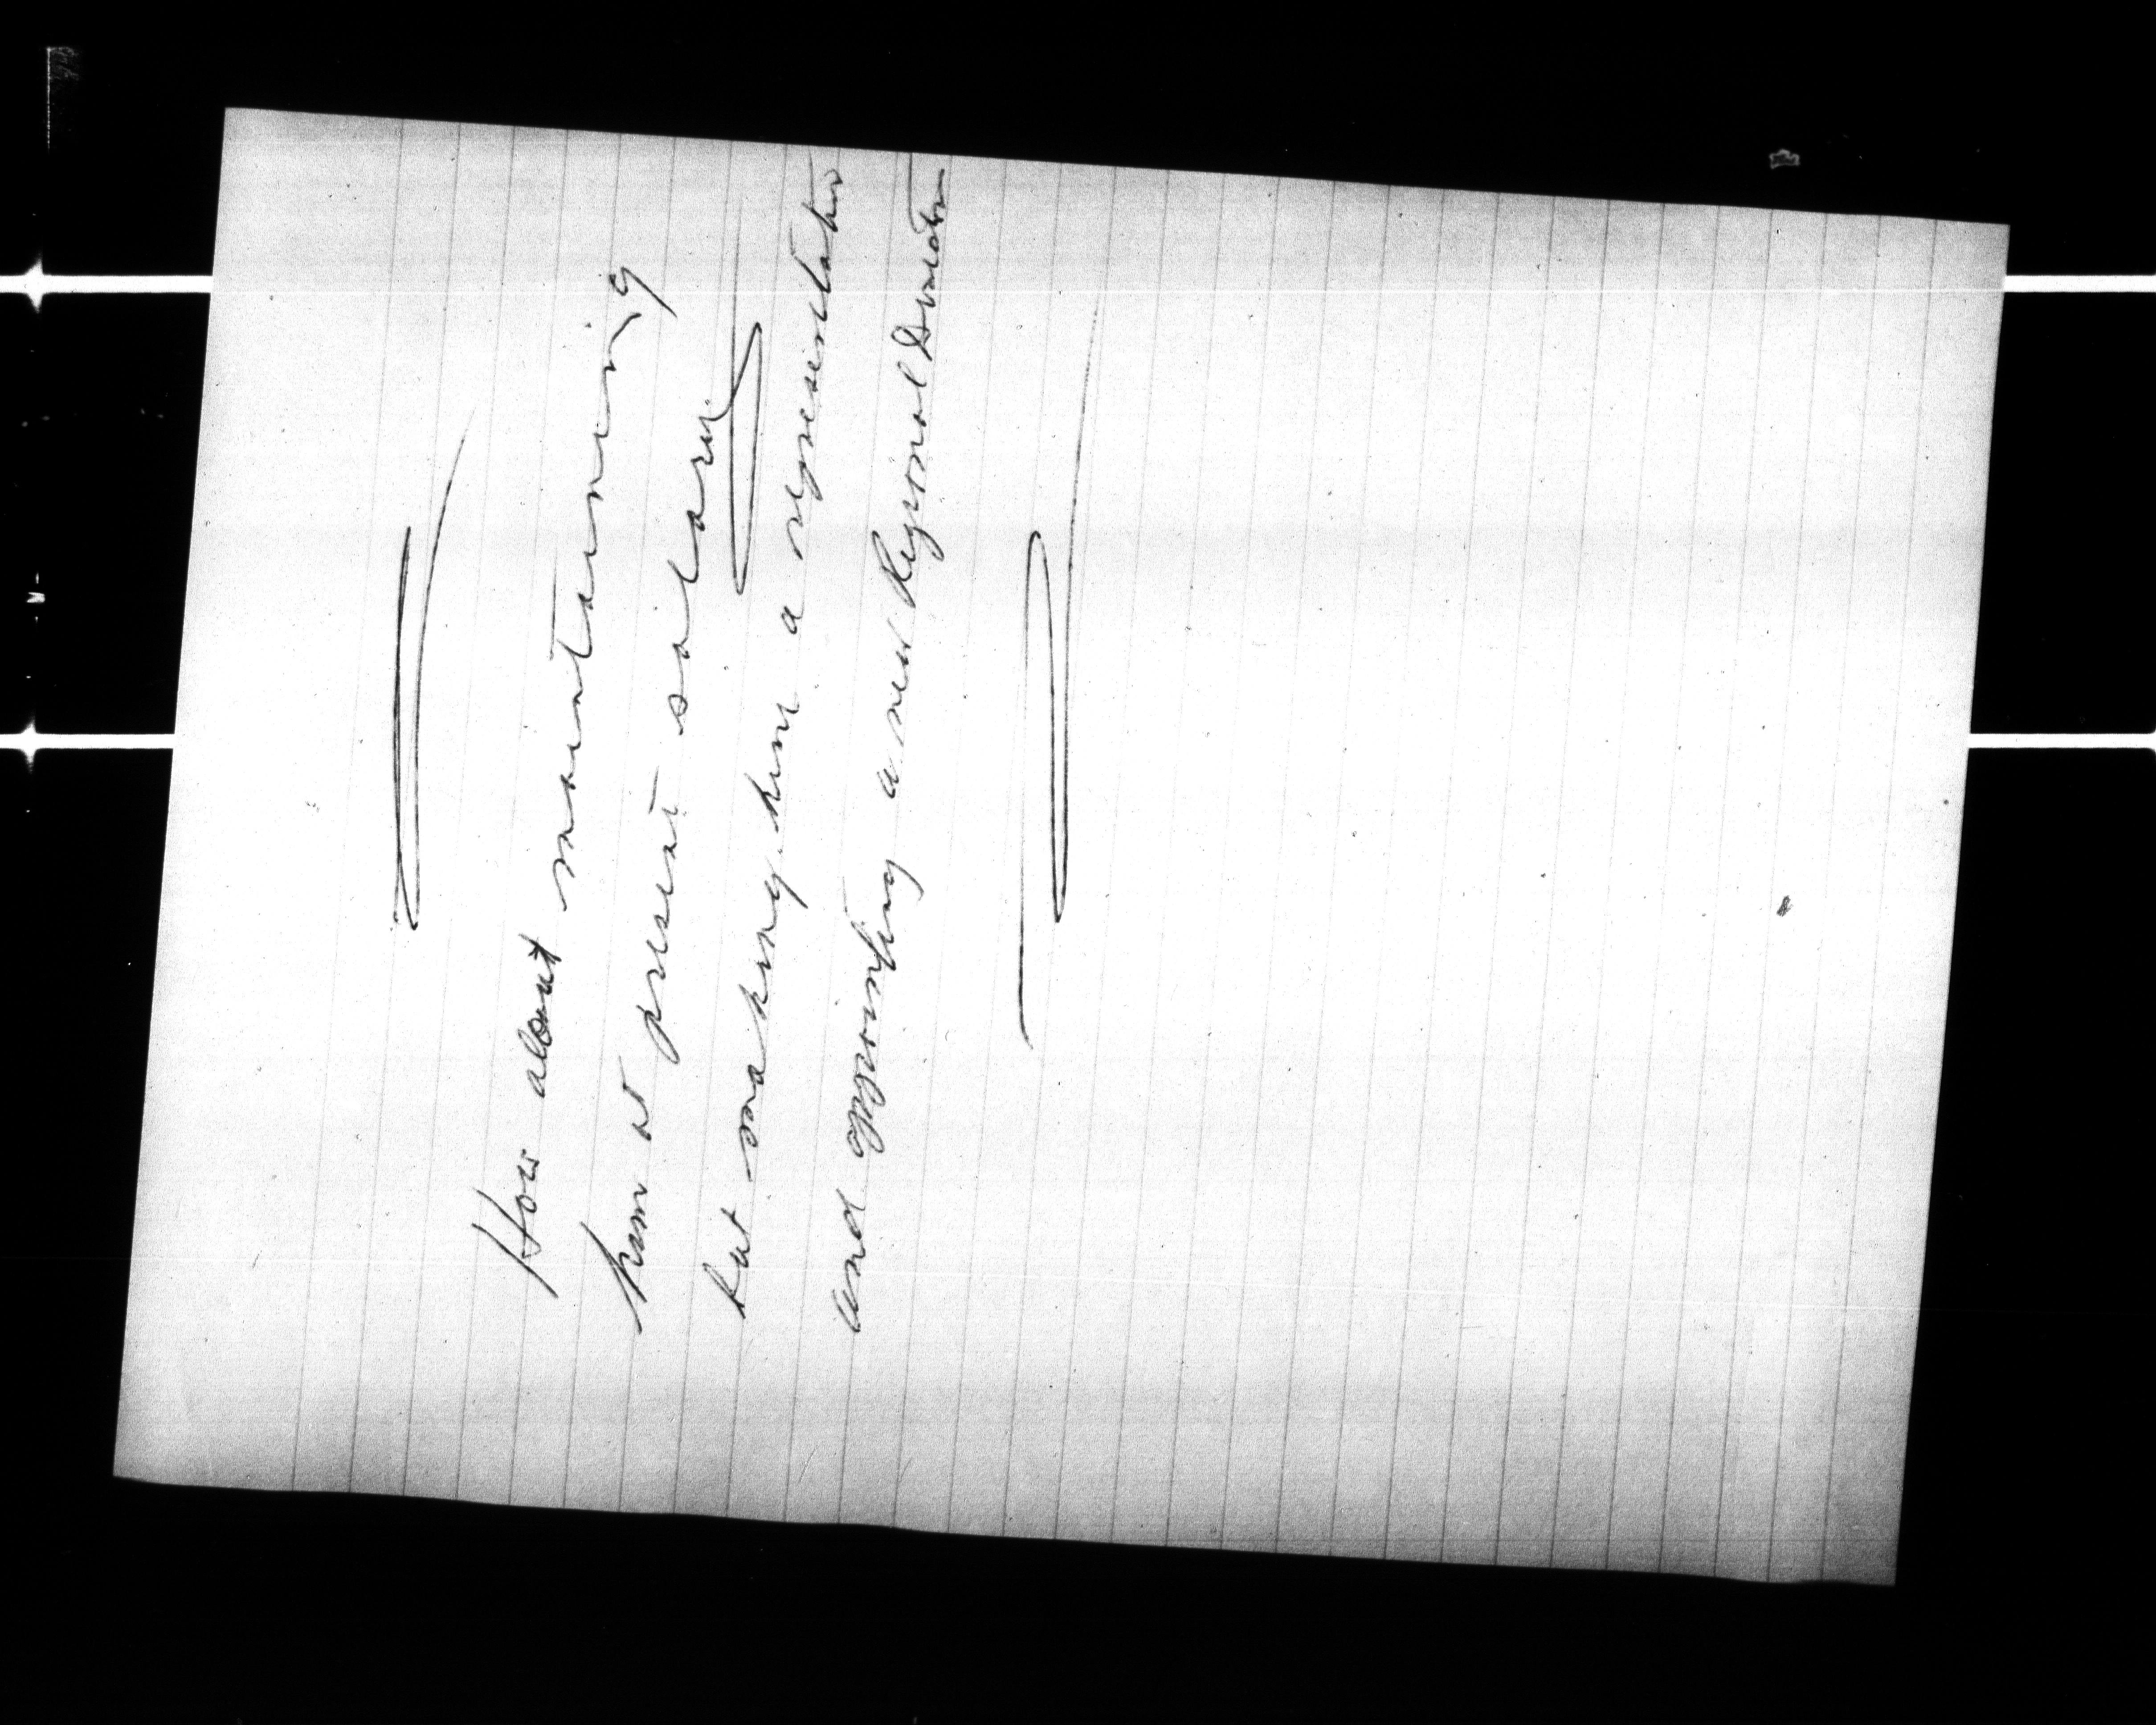 How about maintaining
him at present salary
but making him a representative
and appointing a new Regional Director